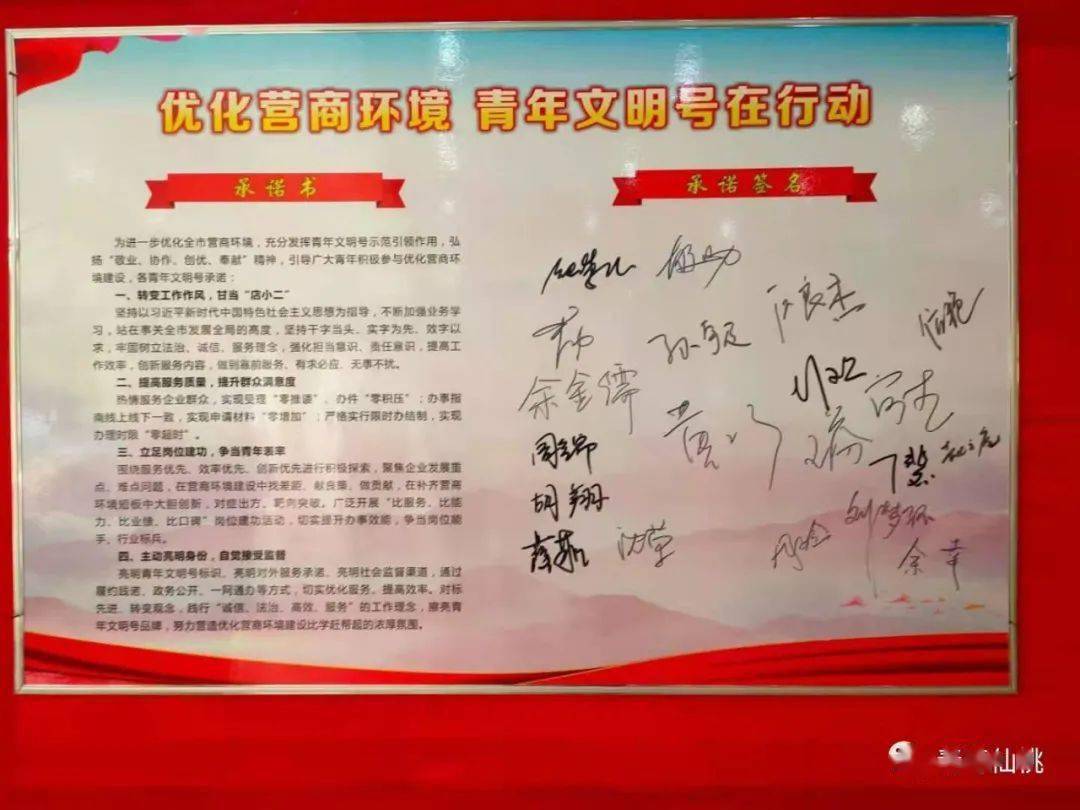 优化营商环境 青年文明号在行动
承诺书
为进一步优化全市营商环境，充分发挥青年文明号示范引领作用，弘
扬“敬业、协作、创优、奉献”精神，引导广大青年积极参与优化营商环
境建设，各青年文明号承诺：
一、转变工作作风，甘当“店小二”
坚持以习近平新时代中国特色社会主义思想为指导，不断加强业务学
习，站在事关全市发展全局的高度，坚持干字当头、实字为先、效字以
求，牢固树立法治、诚信、服务理念，强化担当意识、责任意识，提高工
作效率，创新服务内容，做到靠前服务、有求必应、无事不扰。
二、提高服务质量，提升群众满意度
热情服务企业群众，实现受理“零推诿”、办件“零积压”；办事指
南线上线下一致，实现申请材料“零增加”；严格实行限时办结制，实现
办理时限“零超时”。
三、立足岗位建功，争当青年表率
围绕服务优先、效率优先、创新优先进行积极探索，聚焦企业发展重
点、难点问题，在营商环境建设中找差距、献良策、做贡献，在补齐营商
环境短板中大胆创新，对症出方、靶向突破。广泛开展“比服务、比能
力、比业绩、比口碑”岗位建功活动，切实提升办事效能，争当岗位能
手、行业标兵。
四、主动亮明身份，自觉接受监督
亮明青年文明号标识、亮明对外服务承诺、亮明社会监督渠道，通过
履约践诺、政务公开、一网通办等方式，切实优化服务、提高效率。对标
先进、转变观念，践行“诚信、法治、高效、服务”的工作理念，擦亮青
年文明号品牌，努力营造优化营商环境建设比学赶帮起的浓厚氛围。
承诺签名
余金儒
胡翔
沈莹
刘梦环
余幸
仙桃